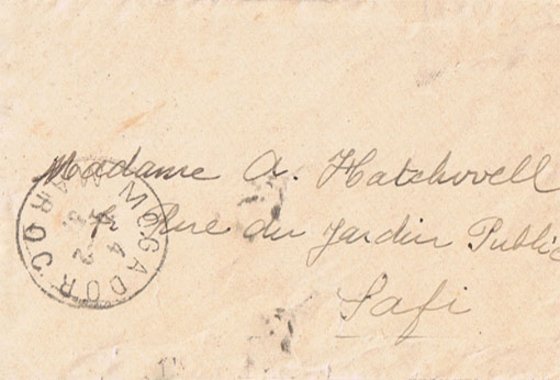 Madame A. Hatchwell
Rue du Jardin Public
Safi
MOGADOR
MAROC
4
2